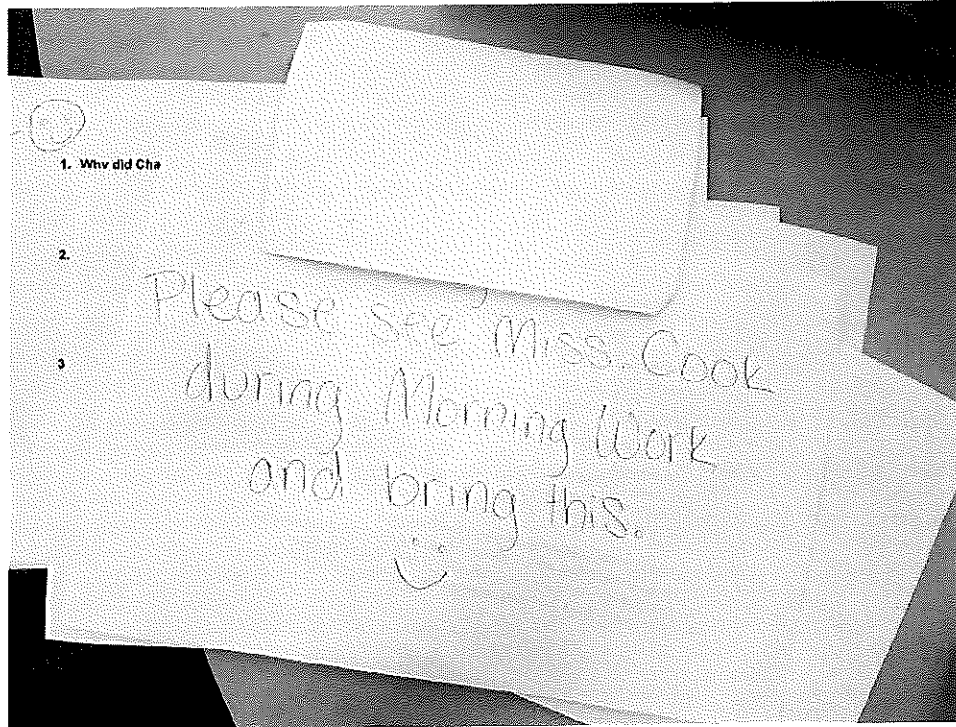 1. Why did Cha
2.
3
Please see Miss. Cook
during Morning Work
and bring this.